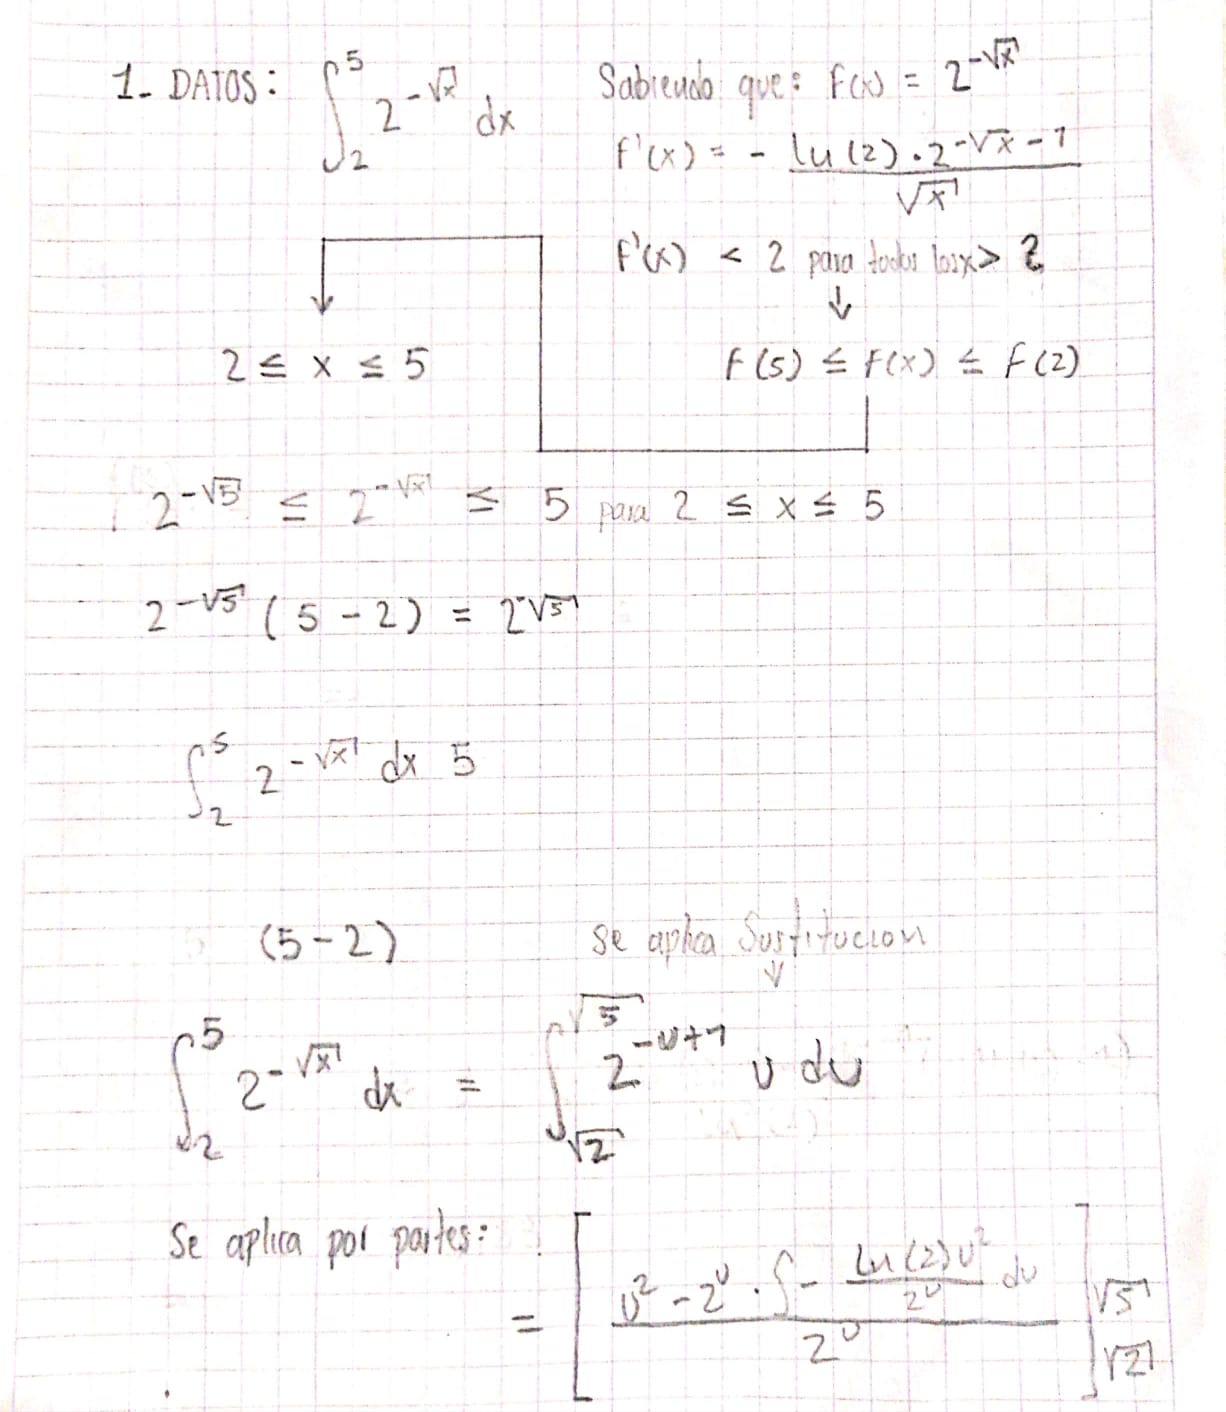 1- DATOS: ∫₂⁵ 2^(-√x) dx
Sabiendo que: f(x) = 2^(-√x)
f'(x) = - (ln(2) · 2^(-√x - 1)) / √x
f'(x) < 2 para todos los x > 2
↓
2 ≤ x ≤ 5
f(5) ≤ f(x) ≤ f(2)
2^(-√5) ≤ 2^(-√x) ≤ 5 para 2 ≤ x ≤ 5
2^(-√5) (5 - 2) = 2^(-√5)
∫₂⁵ 2^(-√x) dx 5
(5 - 2)
Se aplica Sustitucion
↓
∫₂⁵ 2^(-√x) dx = ∫_(√2)^(√5) 2^(-u+1) u du
Se aplica por partes:
= [ (u² - 2^u · ∫ - (ln(2) u²) / 2^u du) / 2^u ]_(√2)^(√5)